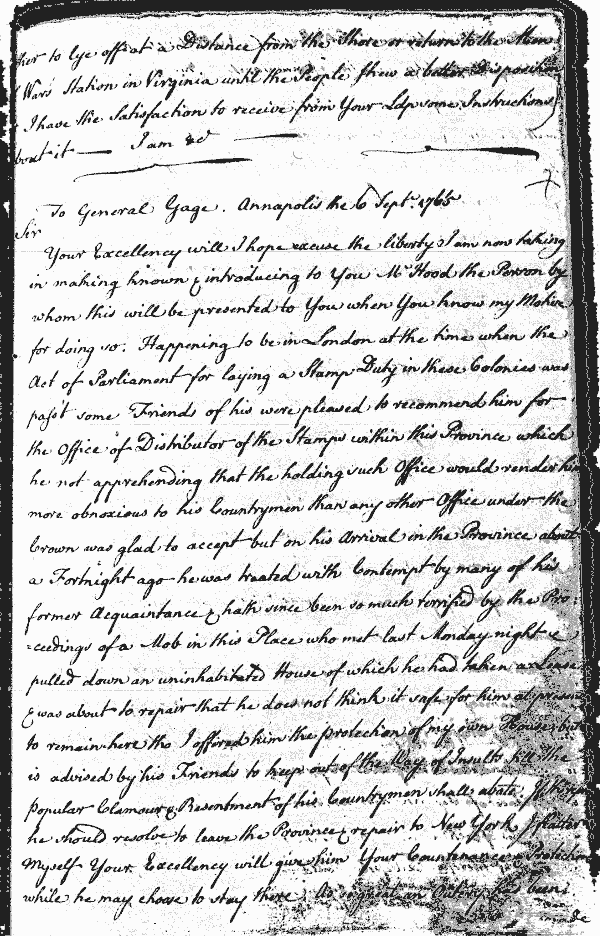 to lye off at a Distance from the Shore or return to the Men
Wars Station in Virginia until the People shew a better Disposition
I have the Satisfaction to receive from Your Ldp some Instructions
bout it — I am &c
To General Gage. Annapolis the 6 Septr. 1765
Sir
Your Excellency will I hope excuse the liberty I am now taking
in making known & introducing to You Mr Hood the Person by
whom this will be presented to You when You know my Motive
for doing so. Happening to be in London at the time when the
Act of Parliament for laying a Stamp Duty in these Colonies was
past some Friends of his were pleased to recommend him for
the Office of Distributor of the Stamps within this Province which
he not apprehending that the holding such Office would render him
more obnoxious to his Countrymen than any other Office under the
Crown was glad to accept but on his Arrival in the Province about
a Fortnight ago he was treated with Contempt by many of his
former Acquaintance & hath since been so much terrified by the Pro:
=ceedings of a Mob in this Place who met last Monday night &
pulled down an uninhabited House of which he had taken a Lease
& was about to repair that he does not think it safe for him at present
to remain here tho I offered him the protection of my own House, but
is advised by his Friends to keep out of the Way of Insults till the
popular Clamour & Resentment of his Countrymen shall abate. If
he should resolve to leave the Province & repair to New York I flatter
Myself Your Excellency will give him Your Countenance & Protection
while he may choose to stay there. As
made